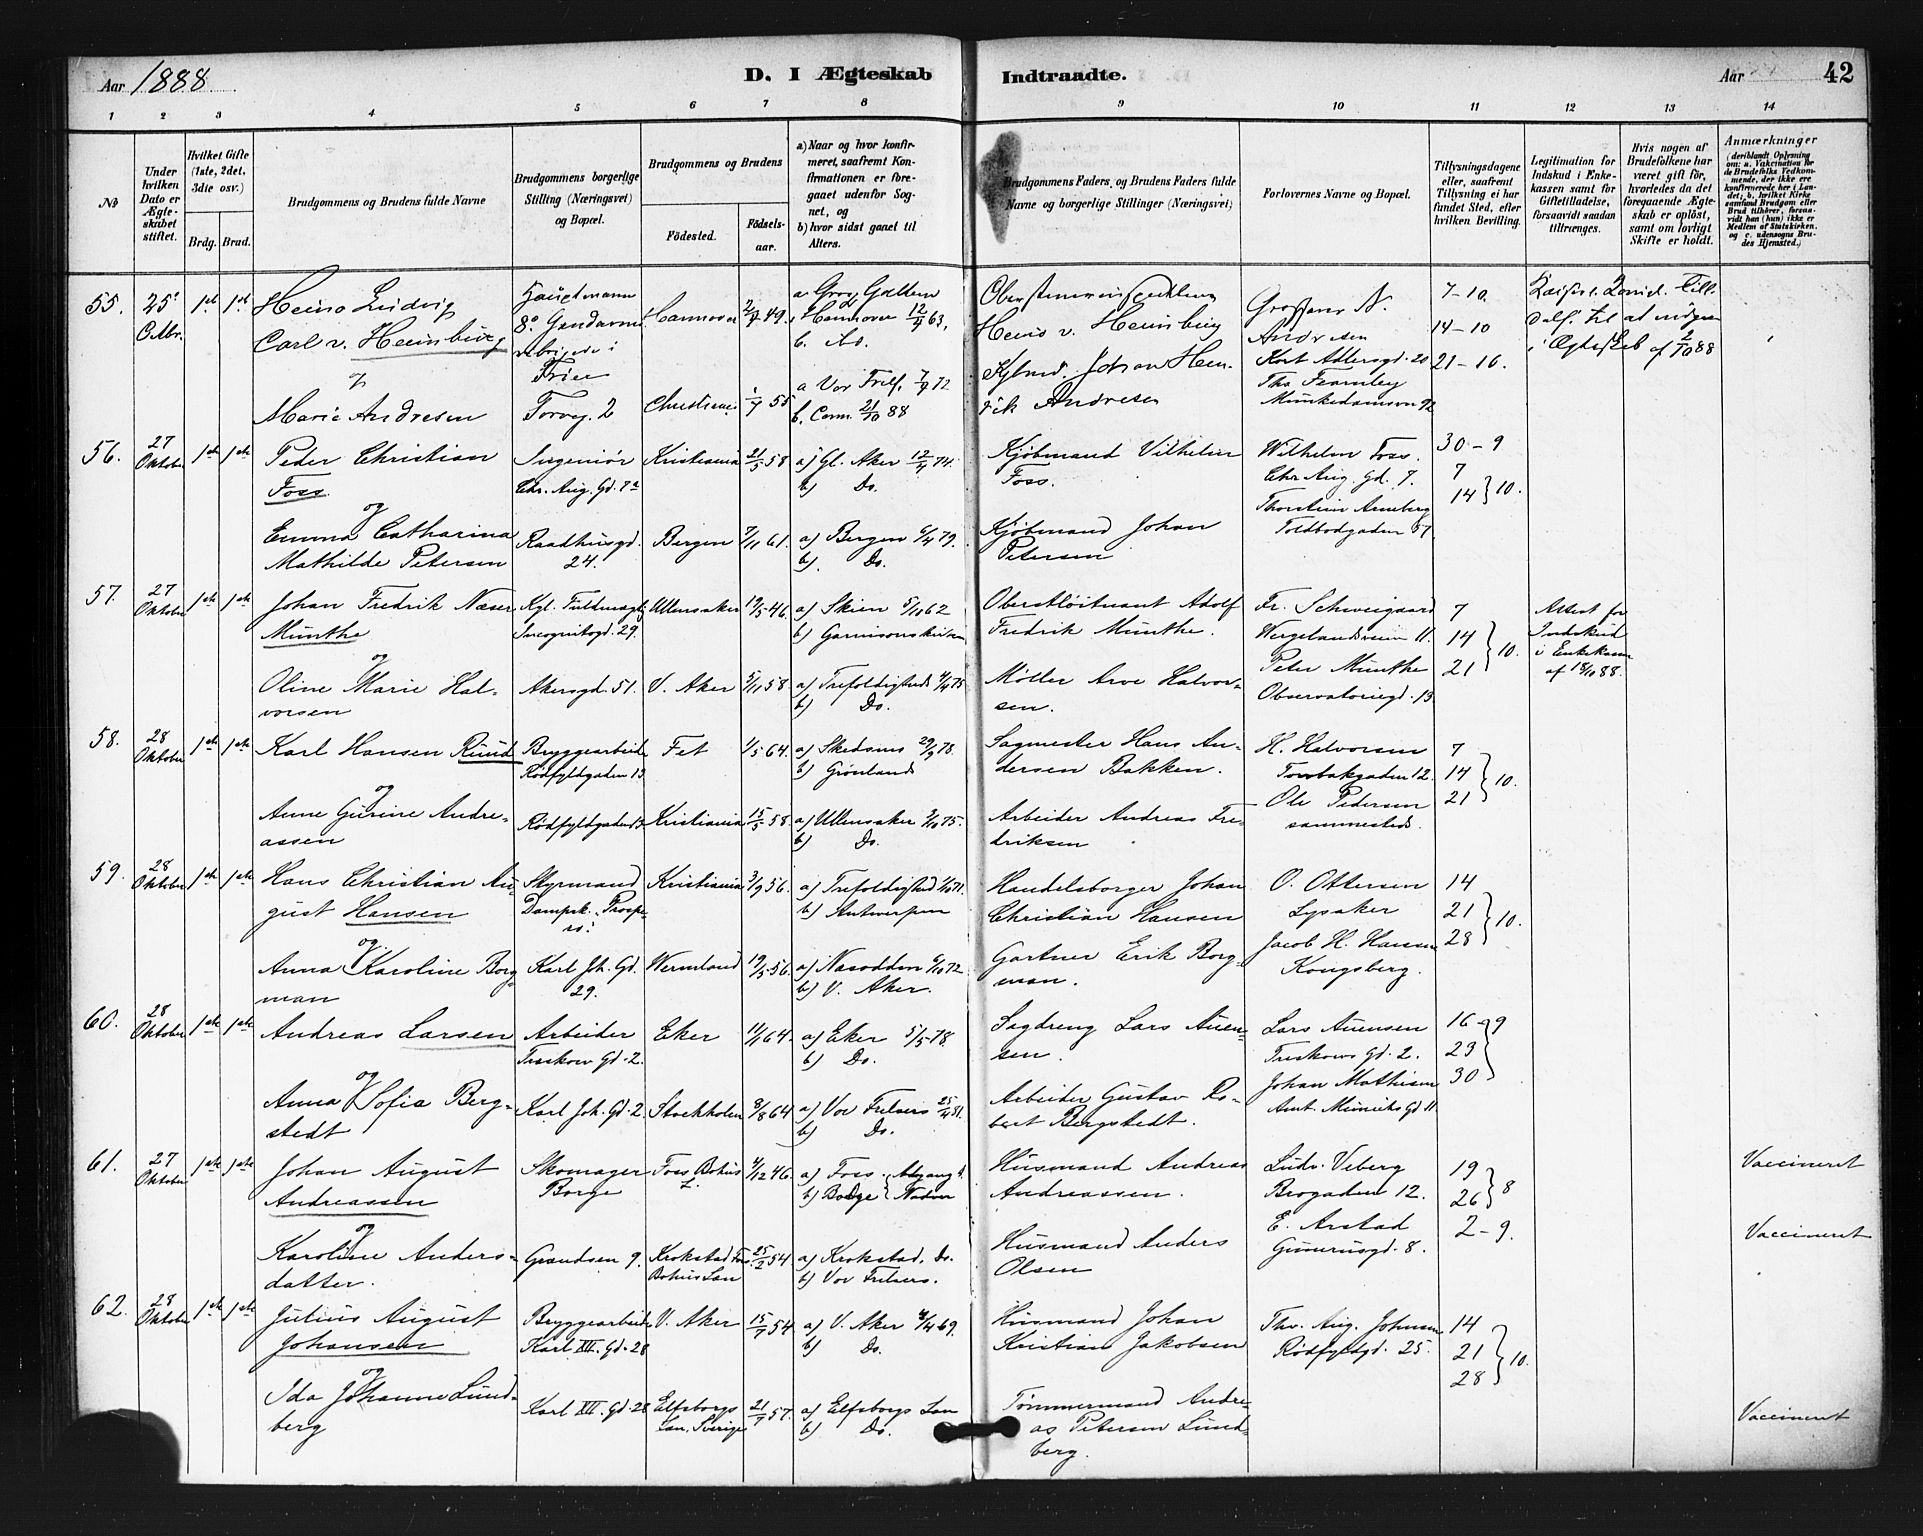 Aar 1888.
D. I Ægteskab
Indtraadte.
Aar
42
1 2 3 4 5 6 7 8 9 10 11 12 13 14
No
Under hvilken Dato er Ægteskabet stiftet.
Hvilket Gifte (1ste, 2det, 3die osv.)
Brdg. Brud.
Brudgommens og Brudens fulde Navne
Brudgommens borgerlige Stilling (Næringsvei) og Bopæl.
Brudgommens og Brudens
Fødested.
Fødselsaar.
a) Naar og hvor konfirmeret, saafremt Konfirmationen er foregaaet udenfor Sognet, og
b) hvor sidst gaaet til Alters.
Brudgommens Faders, og Brudens Faders fulde Navne og borgerlige Stillinger (Næringsvei)
Forlovernes Navne og Bopæl.
Tillysningsdagene eller, saafremt Tillysning ei har fundet Sted, efter hvilken Bevilling.
Legitimation for Indskud i Enkekassen samt for Giftetilladelse, forsaavidt saadan tiltrænges.
Hvis nogen af Brudefolkene har været gift før, hvorledes da det foregaaende Ægteskab er opløst, samt om lovligt Skifte er holdt.
Anmærkninger
55. 25
Octbr.
Heino Ludvig
Carl v. Heimburg
og
Marie Andresen
Hauptmann
8. Gendarmeribrigade i
Trier
Torvg. 2
Hannover 49.
Christiania 55
a Vor Frels. 72
b. 88
Heino v. Heimburg
Kjbmd. Johan Hendrik Andresen
Grosserer N.
Andresen
Kort Adlersgd. 20
Ths Fearnley
Munkedamsvn 72
7-10.
14-10
21-10.
56. 27
Oktober 1ste 1ste
Peder Christian
Foss
og
Emma Catharina
Mathilde Petersen
Ingeniør
Chr. Aug. Gd. 7a
Raadhusgd.
24.
Kristiania 21/5 58
Bergen 7/11 61.
a) Gl. Aker 74.
b) Do.
a) Bergen 6/4 79.
b). Do.
Kjøbmand Vilhelm
Foss.
Kjøbmand Johan
Petersen
Wilhelm Foss.
Chr Aug. Gd. 7.
Thorstein Arneberg
Toldbodgaden
30 - 9
7
14 } 10.
57. 27
Oktober 1ste 1ste
Johan Fredrik Næser
Munthe
og
Oline Marie Halvorsen
Kgl. Fuldmægtig
Incognitogd. 29.
Akersgd. 51.
Ullensaker 19/5 46.
V. Aker 5/11 58.
a) Skien 5/10 62
b) Garnisonskirken
a) Trefoldigheds 4/4 75
b) Do.
Oberstløitnant Adolf
Fredrik Munthe.
Møller Arve Halvorsen.
Fr. Schweigaard
Wergelandsveien 11.
Peter Munthe
Observatoriegd. 13.
7
14
21 } 10.
Attest for
Indskud
i Enkekassen
af 18/10 88.
58. 28
Oktober 1ste 1ste
Karl Hansen Ruud
og
Anne Gurine Andreassen
Bryggearbeider
Rødfyldgaden 13
Rødfyldgaden 13.
Fet 1/5 64.
Kristiania 15/5 58.
a) Skedsmo 29/9 78.
b) Grønlands
a) Ullensaker 3/10 75.
b) Do.
Sagmester Hans Andersen Bakken.
Arbeider Andreas Fredriksen
H. Halvorsen
Torvbakgaden 12.
Ole Pedersen
sammesteds.
7
14
21 } 10.
59. 28
Oktober 1ste 1ste
Hans Christian August Hansen
og
Anna Karoline Borgman
Styrmand
Dampsk. Prospero.
Karl Joh. Gd.
29.
Kristiania 3/9 56.
Wermland 19/5 56.
a) Trefoldighed 1/10 71.
b) Antwerpen
a) Nesodden 6/10 72
b) V. Aker.
Handelsborger Johan
Christian Hansen
Gartner Erik Borgman.
O. Ottersen
Lysaker
Jacob H. Hansen
Kongsberg.
14
21
28 } 10.
60. 28
Oktober 1ste 1ste
Andreas Larsen
og
Anna Sofia Bergstedt
Arbeider
Treskow Gd. 2.
Karl Joh. Gd. 2
Eker 64.
Stockholm 8/8 64
a) Eker 5/5 78.
b) Do.
a) Vor Frelsers 25/4 81.
b) Do.
Sagdreng Lars Auensen.
Arbeider Gustav Robert Bergstedt.
Lars Auensen
Treskows Gd. 2.
Johan Mathisen
Amt. Munchs Gd 11.
16
23
30 } 9
61. 27
Oktober 1ste 1ste
Johan August
Andreassen
og
Karoline Andersdatter.
Skomager
Borge
Grændsen 9.
Foss Bohus
L. 4/12 46.
Krokstad Foss
Bohus Len 25/2 54.
a) Foss.
b) Borge
a) Krokstad. Do.
b) Vor Frelsers.
Husmand Andreas
Andreassen.
Husmand Anders
Olsen
Ludv. Veberg
Brogaden 12.
E. Arstad
Gunerusgd. 8.
19
26 } 8
2 - 9.
Vaccineret
Vaccineret
62. 28
Oktober 1ste 1ste
Julius August
Johansen
og
Ida Johanne Lundberg
Bryggearbeider
Karl XII. Gd. 28
Karl XII. Gd. 28
V. Aker 15/7 54
Elfsborgs
Lan, Sverige 21/7 57.
a) V. Aker 4/4 69.
b) Do.
a) Elfsborgs Lan
b) Do.
Husmand Johan
Kristian Jakobsen
Tømmermand Andreas Petersen Lundberg.
Thv. Aug. Johnsen
Rødfyldgd. 25.
14
21
28 } 10.
Vaccineret